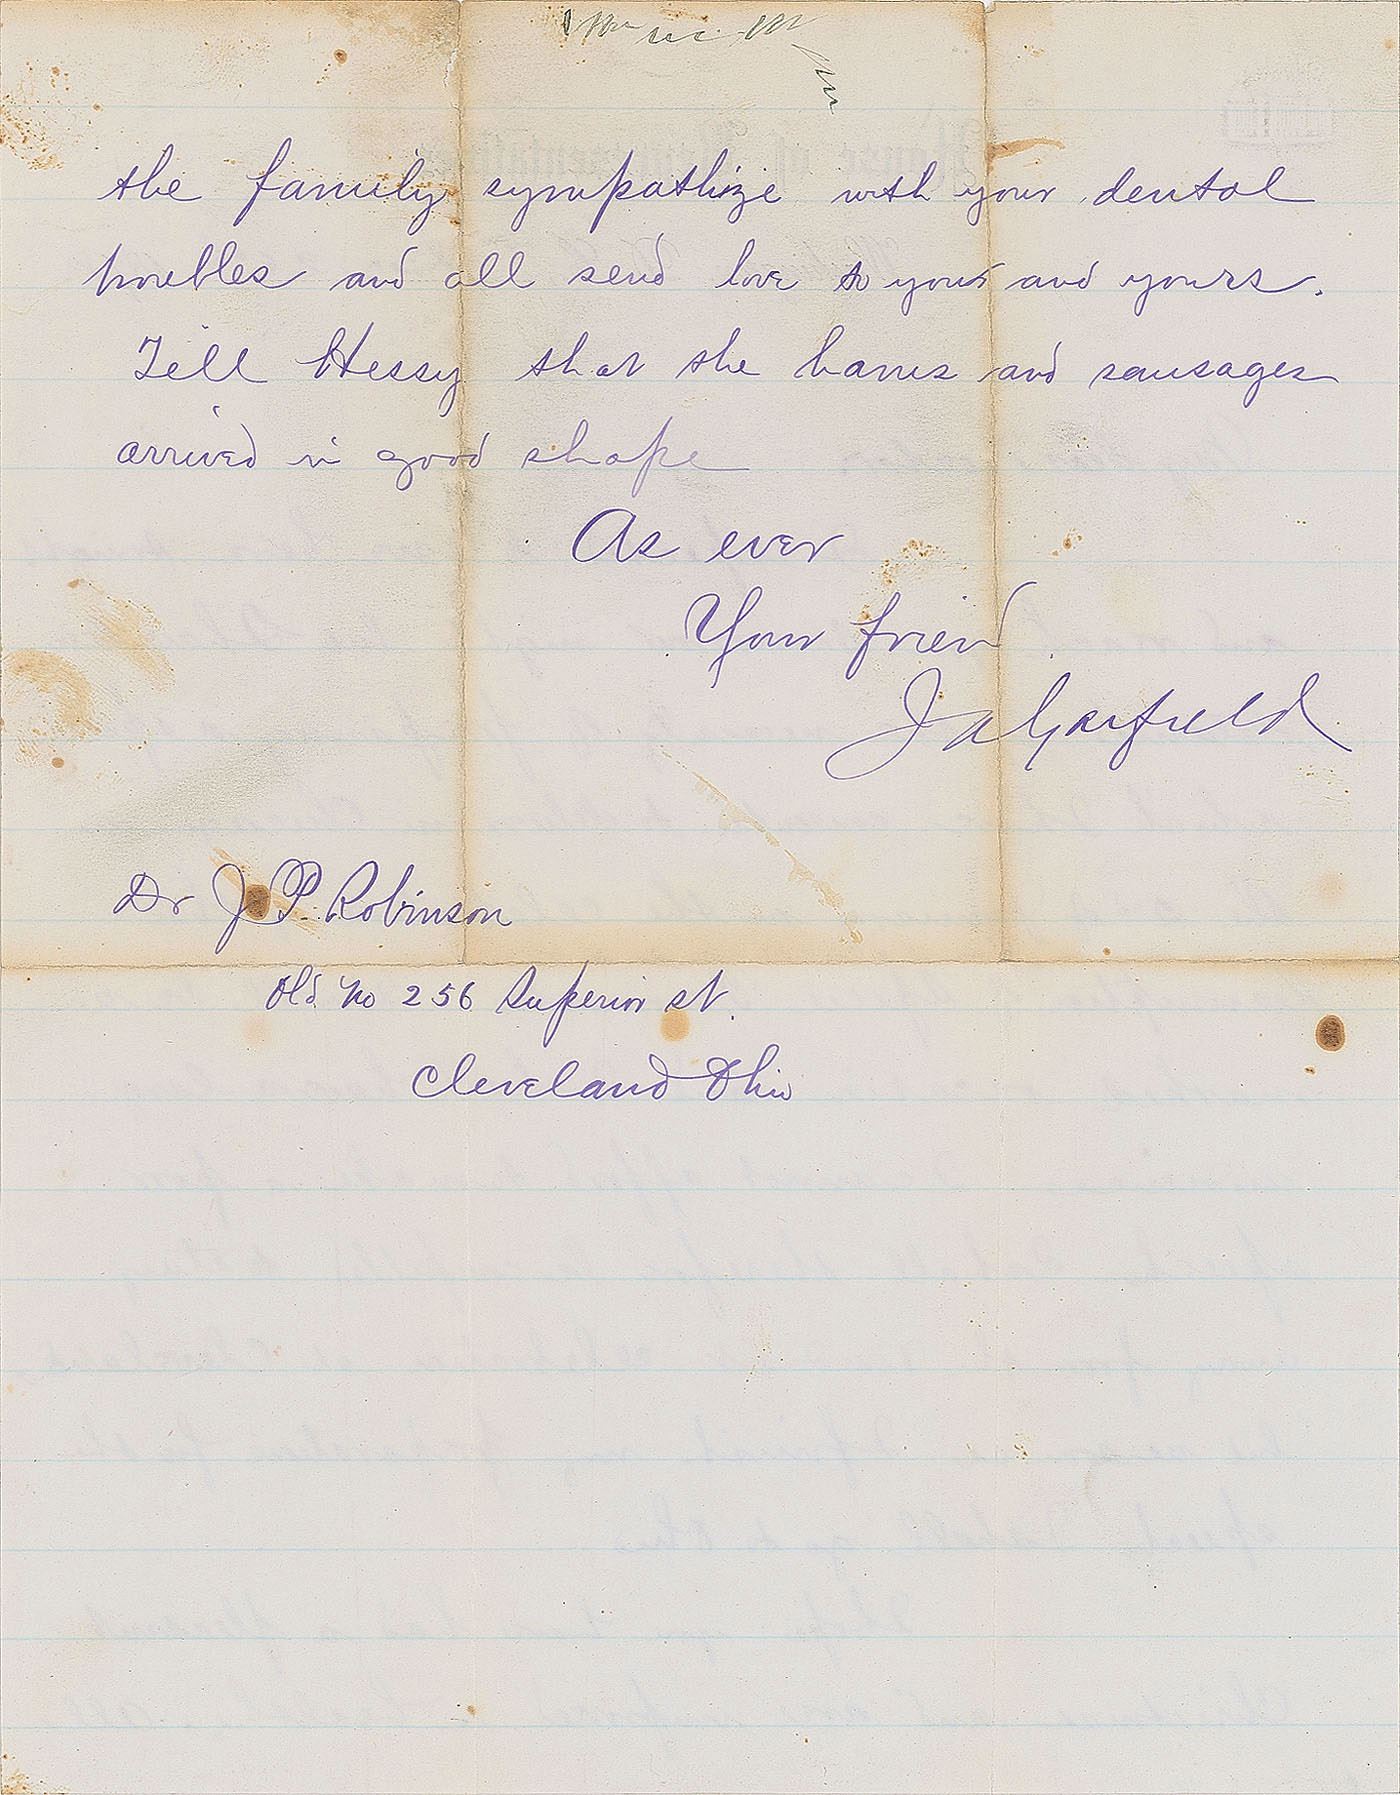 the family sympathize with your dental
troubles and all send love to you and yours.
Tell Hessy that the hams and sausages
arrived in good shape
As ever
Your friend
J A Garfield
Dr J. P. Robinson
Old No 256 Superior St.
Cleveland Ohio